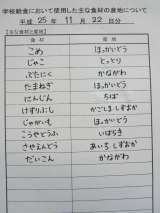 学校給食において使用した主な食材の産地について
平成 25 年 11 月 22 日分
【主な食材と産地】
食材 産地
こめ ほっかいどう
じゃこ とっとり
ぶたにく かながわ
たまねぎ ほっかいどう
にんじん ちば
けずりぶし かごしま・しずおか
じゃがいも ほっかいどう
こうやどうふ いばらき
さやえんどう あいち しずおか
だいこん かながわ